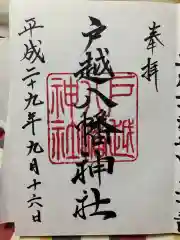 奉拝
戸越八幡神社
戸越
神社
平成二十九年九月十六日